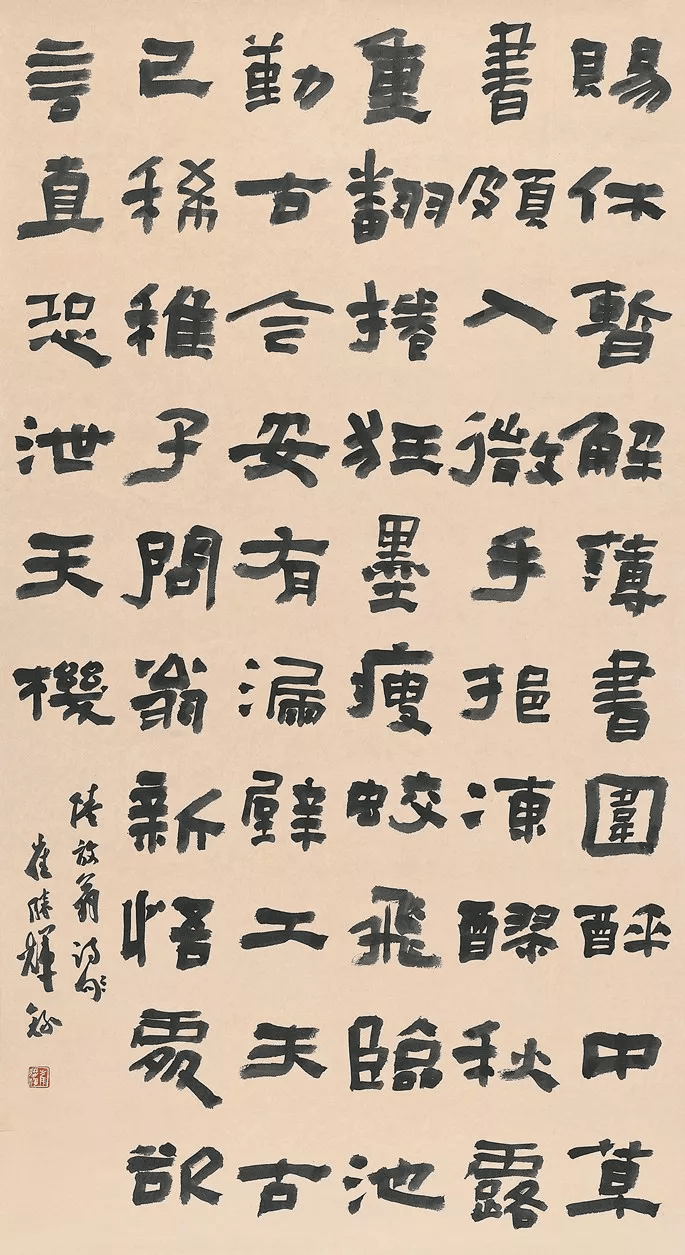 賜休暫解薄書圍醉中草
書頗入微手挹凍醪秋露
重翻捲狂墨瘦蛟飛臨池
勤古今安有漏壁工夫古
已稀稚子問翁新悟處欲
言直恐泄天機
陸放翁詩句
崔輝錄